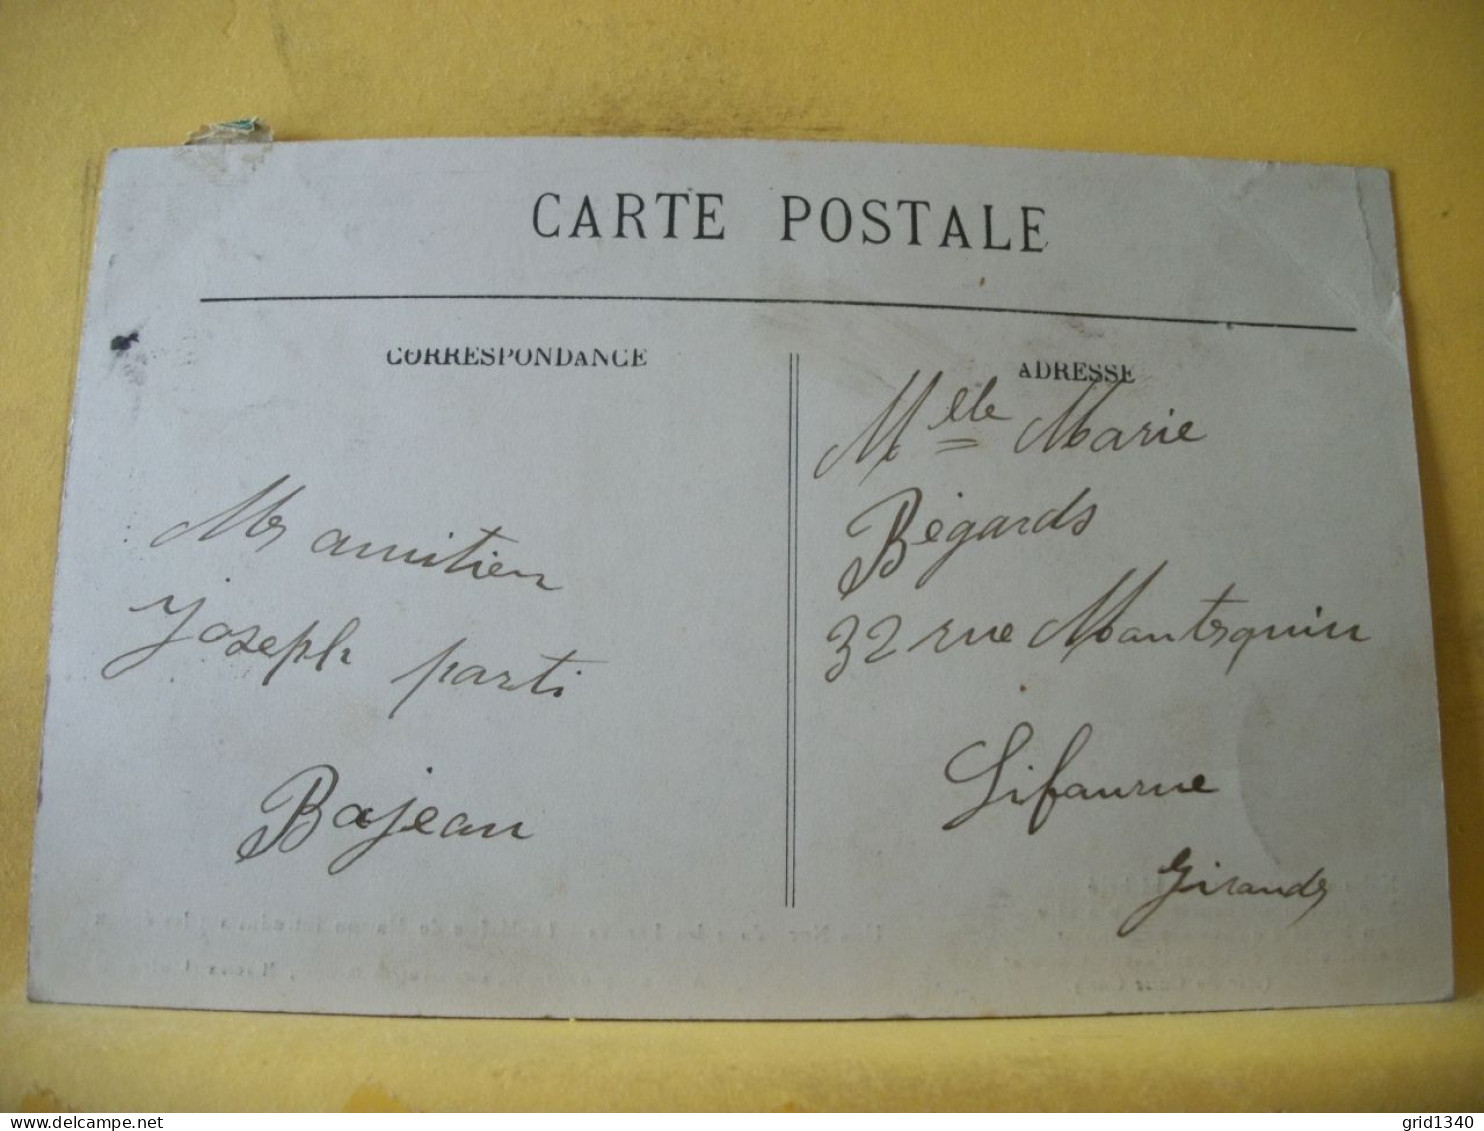 CARTE POSTALE
CORRESPONDANCE
Mes amitien
Joseph parti
Bajean
ADRESSE
Mlle Marie
Bégards
32 rue Mantesquin
Lifaurne
Girande
grid1340